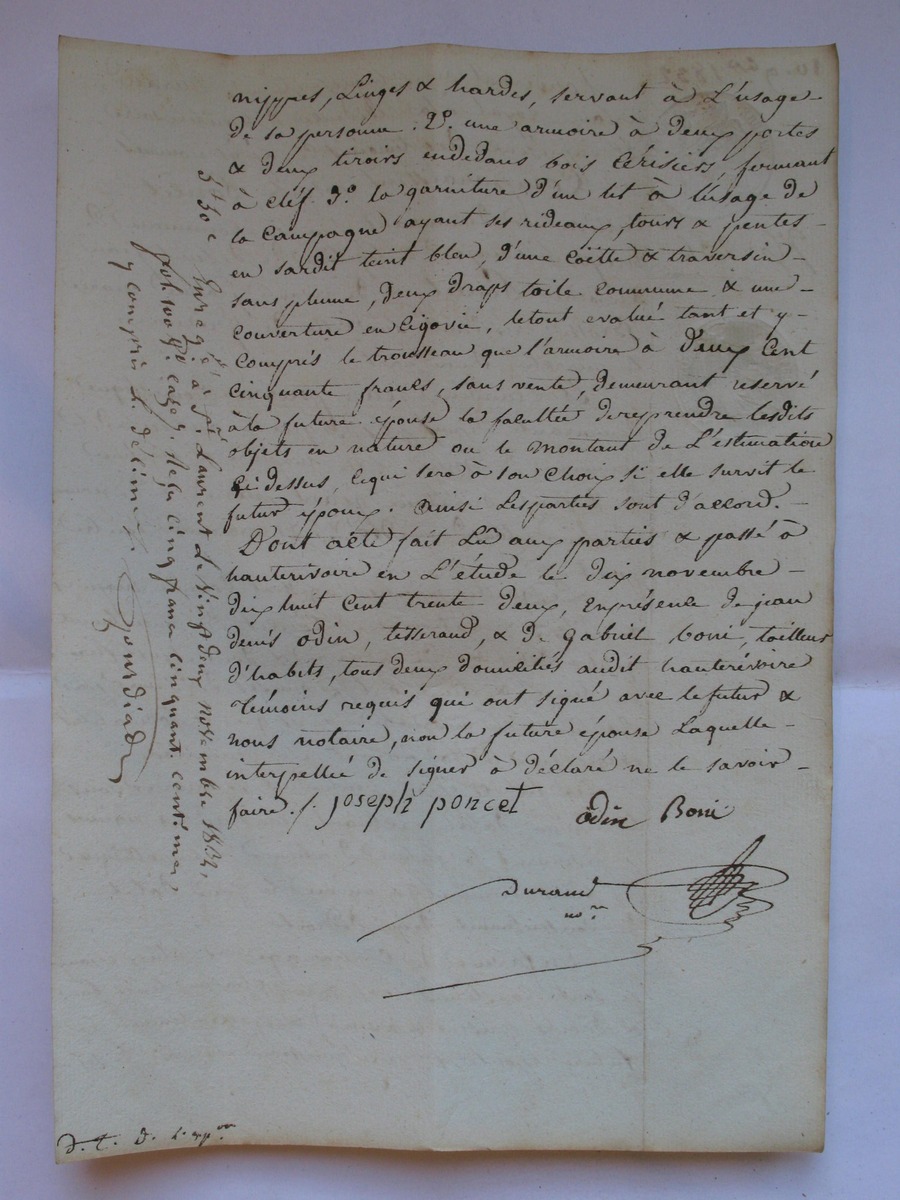 nippes, Linges & hardes, servant à L'usage
de sa personne. 2º. une armoire à deux portes
& deux tiroirs endedans bois Cérisiers, fermant
à cléf. 3º. la garniture d'un lit à l'usage de
la Campagne ayant ses rideaux, tours & pentes
en sardit teint bleu, d'une Coëtte & traversin
sans plume, deux draps toile Commune & une
Couverture en Cigovie, letout evalué tant et y-
Compris le trousseau que l'armoire à deux Cent
Cinquante francs, sans vente, demeurant reservé
àla future épouse la facultée dereprendre lesdits
objets en nature ou le montant de L'estimation
Ci dessus, Cequi sera à son Choix si elle survit le
futur époux. ainsi Lesparties sont d'accord.
Dont acte fait Lu aux parties & passé à
hauterivoire en L'étude le dix novembre
dix huit Cent trente deux, Enprésence de jean
denis odin, tisserand, & de gabriel boni, tailleur
d'habits, tous deux domiciliés audit hauterivoire
témoins requis qui ont signé avec lefutur &
nous notaire, non la future épouse Laquelle
interpellée de signer à déclaré ne le savoir
faire. /. joseph poncet
odin Boni
Durand
no.re
5f 50c
Enregé. à St. Laurent Le Vingt deux novembre 1832,
fol. 100 Vo. Case 7. Reçu Cinq francs Cinquante Centimes,
y Compris L. déCime.